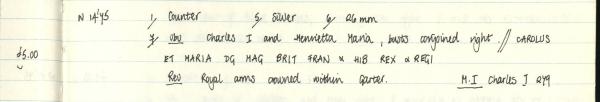 N 1445 1, Counter 5, Silver 6, 26 mm
7, Obv Charles I and Henrietta Maria, busts conjoined right // CAROLUS
£5.00 ET MARIA DG MAG BRIT FRAN & HIB REX & REGI
Rev Royal arms crowned within Garter. M.I Charles I 249